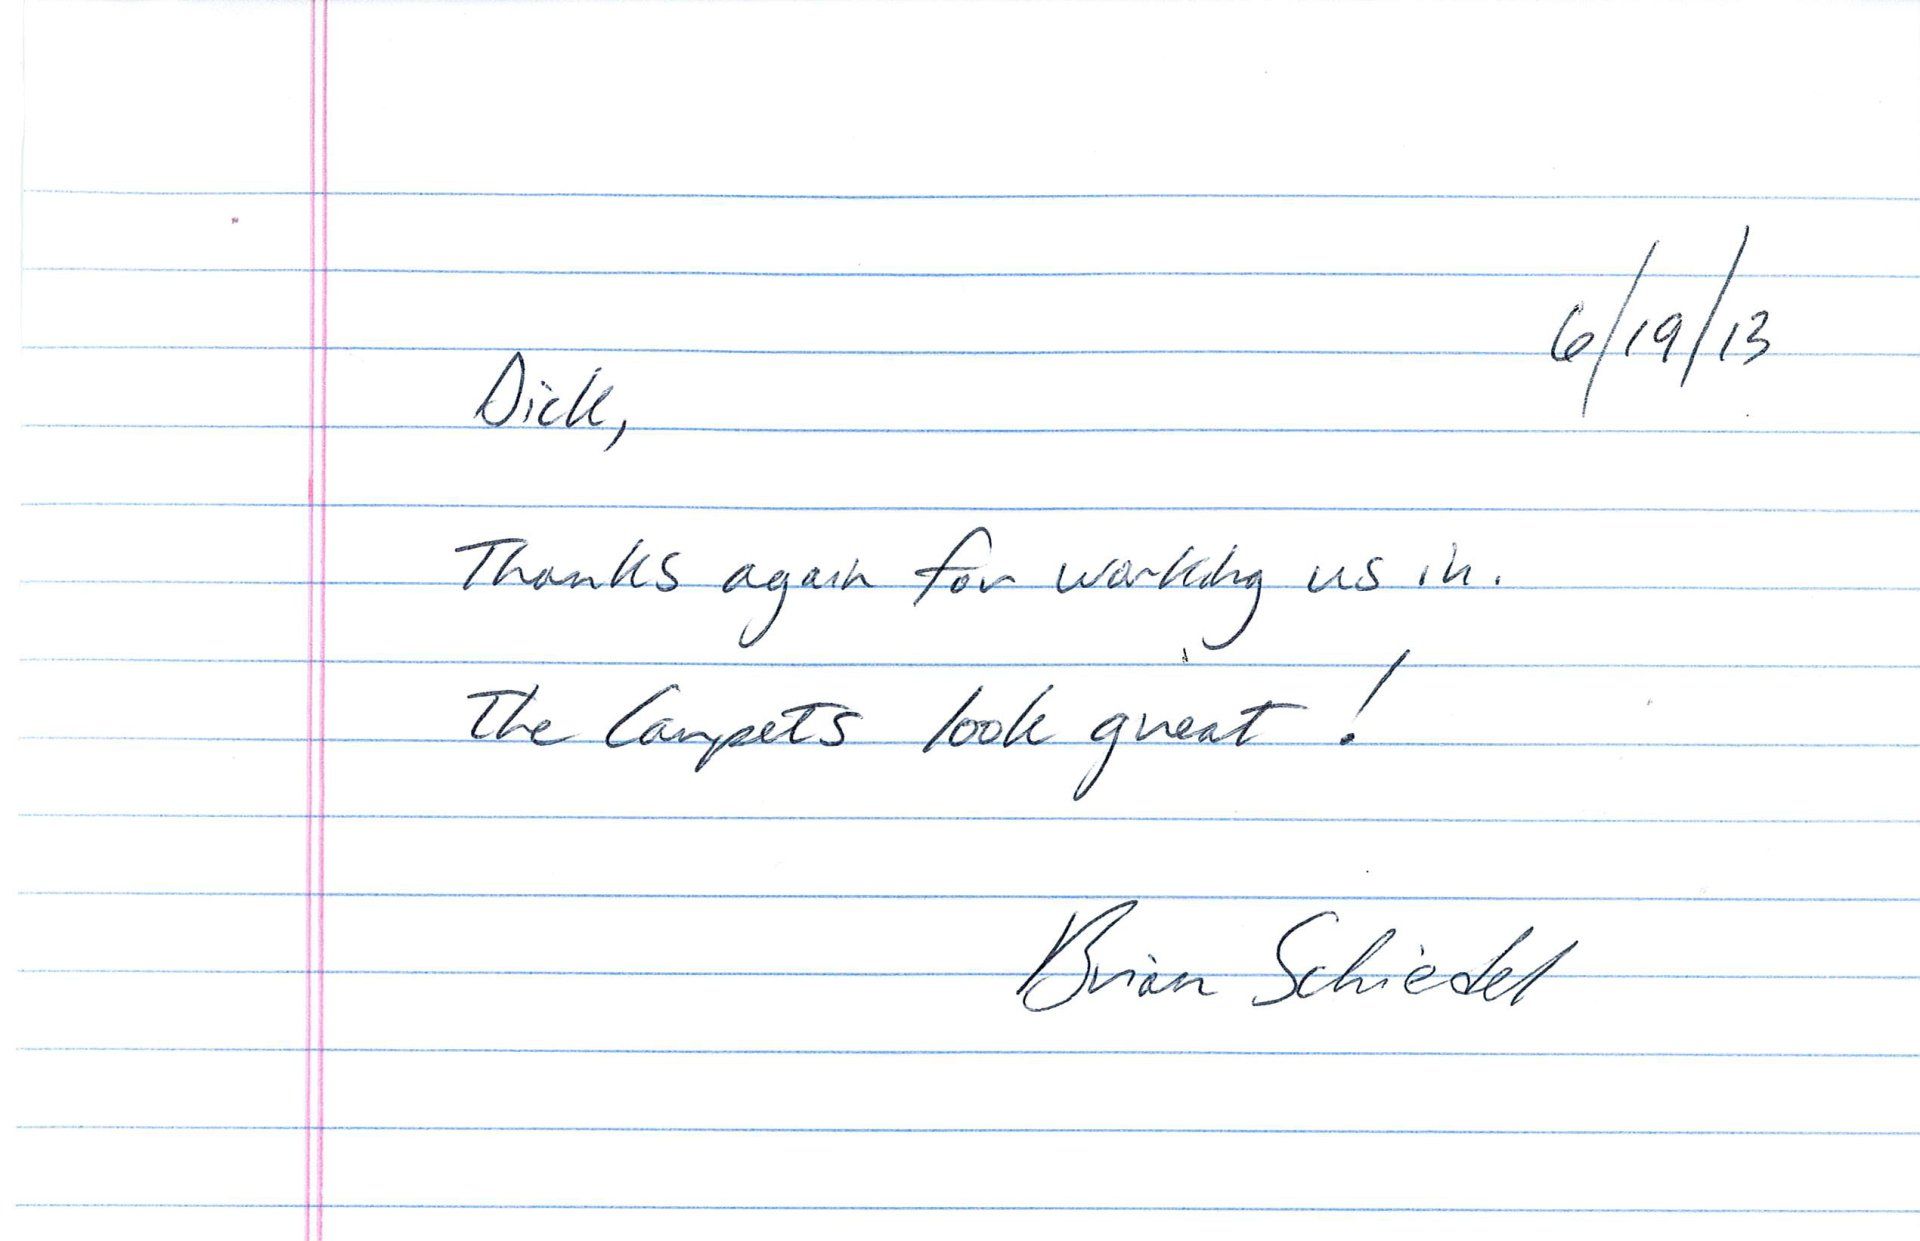 6/19/13
Dick,
Thanks again for working us in.
The Carpets look great!
Brian Schiedel